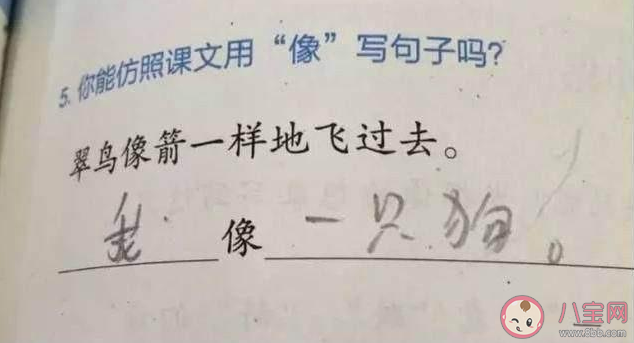 5. 你能仿照课文用“像”写句子吗？
翠鸟像箭一样地飞过去。
我像一只狗。
八宝网
www.8bb.com